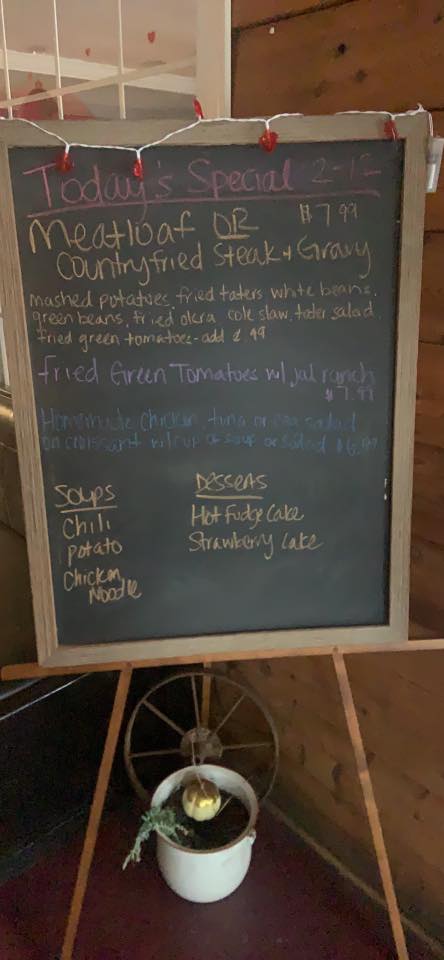 Today's Special 2-12
Meatloaf OR $7.99
Countryfried Steak + Gravy
mashed potatoes, fried taters, white beans,
green beans, fried okra, cole slaw, tater salad,
fried green tomatoes - add ¢ 99
Fried Green Tomatoes w/ jal ranch
$7.99
Homemade Chicken, tuna or egg salad
on croissant w/ cup of soup or salad $6.99
Soups
Chili
potato
Chicken
Noodle
Desserts
Hot Fudge Cake
Strawberry Cake